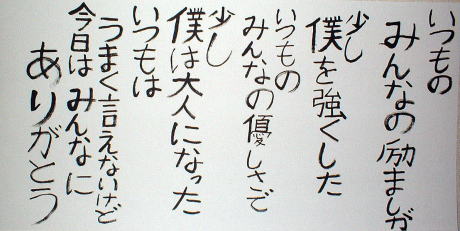 いつもの
みんなの励ましが
少し
僕を強くした
いつもの
みんなの優しさで
少し
僕は大人になった
いつもは
うまく言えないけど
今日はみんなに
ありがとう